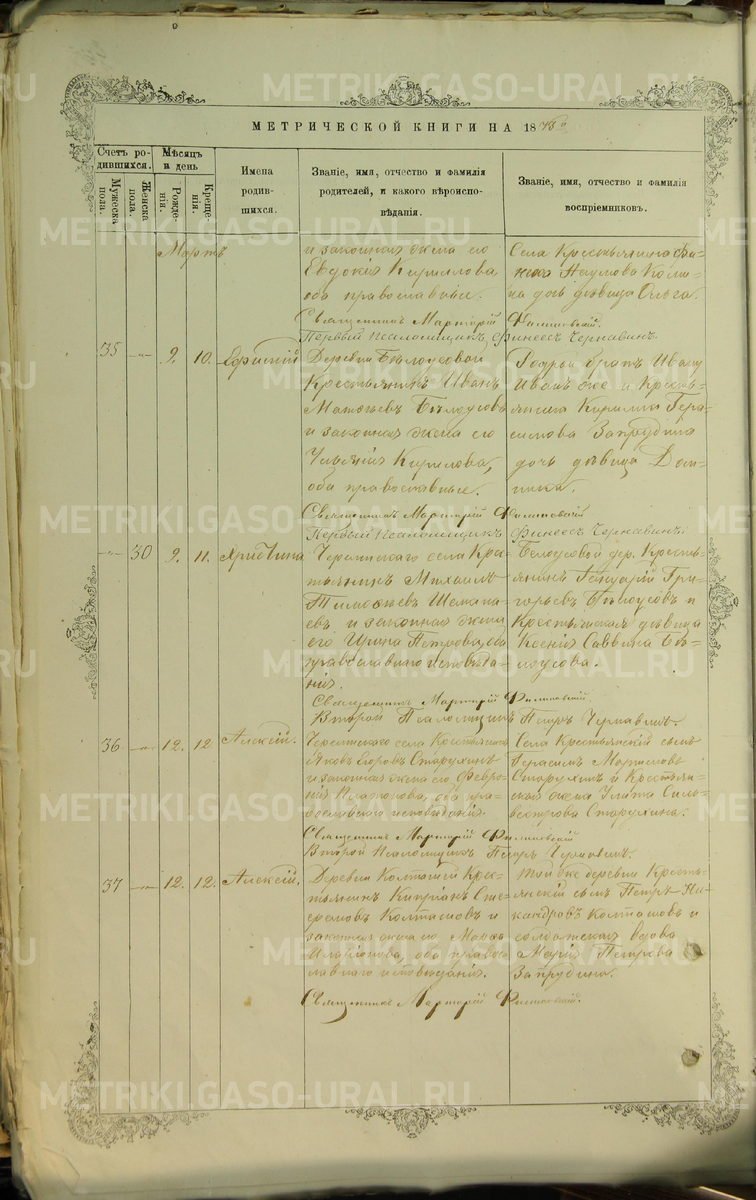 МЕТРИЧЕСКОЙ КНИГИ НА 18
Счетъ родившихся.
Мужеска пола.
Женска пола.
Мѣсяцъ и день
Рожденія.
Крещенія.
Имена
родив-
шихся.
Званіе, имя, отчество и фамилія
родителей, и какого вѣроиспо-
вѣданія.
Званіе, имя, отчество и фамилія
воспріемниковъ.
Мартъ
и законная жена его
Евдокія Кирилова
оба православные.
Села Крестьянина
Наумова
дочь дѣвица Ольга.
Священникъ Мартирій
Первый Псаломщикъ Финеесъ Чернавинъ.
35 9. 10.
Деревни Бѣлоусовой
Крестьянинъ Иванъ
Матѳеевъ Бѣлоусовъ
и законная жена его
Кирилова,
оба православные.
Родной братъ Ивану
Иванъ же и Кресть-
янина Кирилы Гера-
симова Запрудина
дочь дѣвица Дом-
ника.
Священникъ Мартирій
Первый Псаломщикъ Финеесъ Чернавинъ.
30 9. 11. Христина
села Кре-
стьянинъ Михаилъ
и законная жена
его Ирина Петрова, оба
православнаго исповѣда-
нія.
Белоусовой дер. Кресть-
янинъ Гри-
горьевъ Бѣлоусовъ и
Крестьянская дѣвица
Ксенія Саввина Бѣ-
лоусова.
Священникъ Мартирій
Второй Псаломщикъ Петръ Чернавинъ.
36 12. 12. Алексій.
села Крестьянинъ
Яковъ Старухинъ
и законная жена его Февро-
нія Платонова, оба пра-
вославнаго исповѣданія.
Села Крестьянскій сынъ
Герасимъ
Старухинъ и Крестьян-
ская жена Улита Силь-
вестрова Старухина.
Священникъ Мартирій
Второй Псаломщикъ Петръ Чернавинъ.
37 12. 12. Алексій.
Деревни Колташей Кре-
стьянинъ Кипріанъ Сте-
фановъ Колташовъ и
законная жена его
Иларіонова, оба право-
славнаго исповѣданія.
Той же деревни Кресть-
янскій сынъ Петръ Ни-
кандровъ Колташовъ и
солдатская вдова
Марія Петрова
Запрудина.
Священникъ Мартирій
METRIKI.GASO-URAL.RU